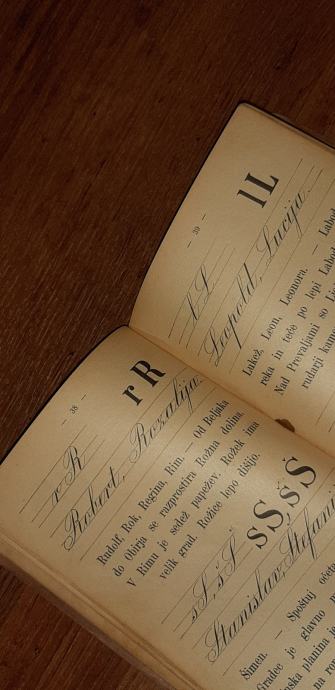 — 38 —
r R
r R
Robert, Rozalija.
Rudolf, Rok, Regina, Rim. — Od Beljaka
do Obirja se razprostira Rožna dolina.
V Rimu je sedež papežev. Rožek ima
velik grad. Rožice lepo dišijo.
s S, š Š
s S, š Š
Stanislav, Štefan
Šimen. — Spoštuj očeta
Gradec je glavno
planina je
— 39 —
l L
l L
Leopold, Lucija.
Lukež, Leon, Leonora. — Labod
reka in teče po lepi Labod
Nad Prevaljami so
rudarji